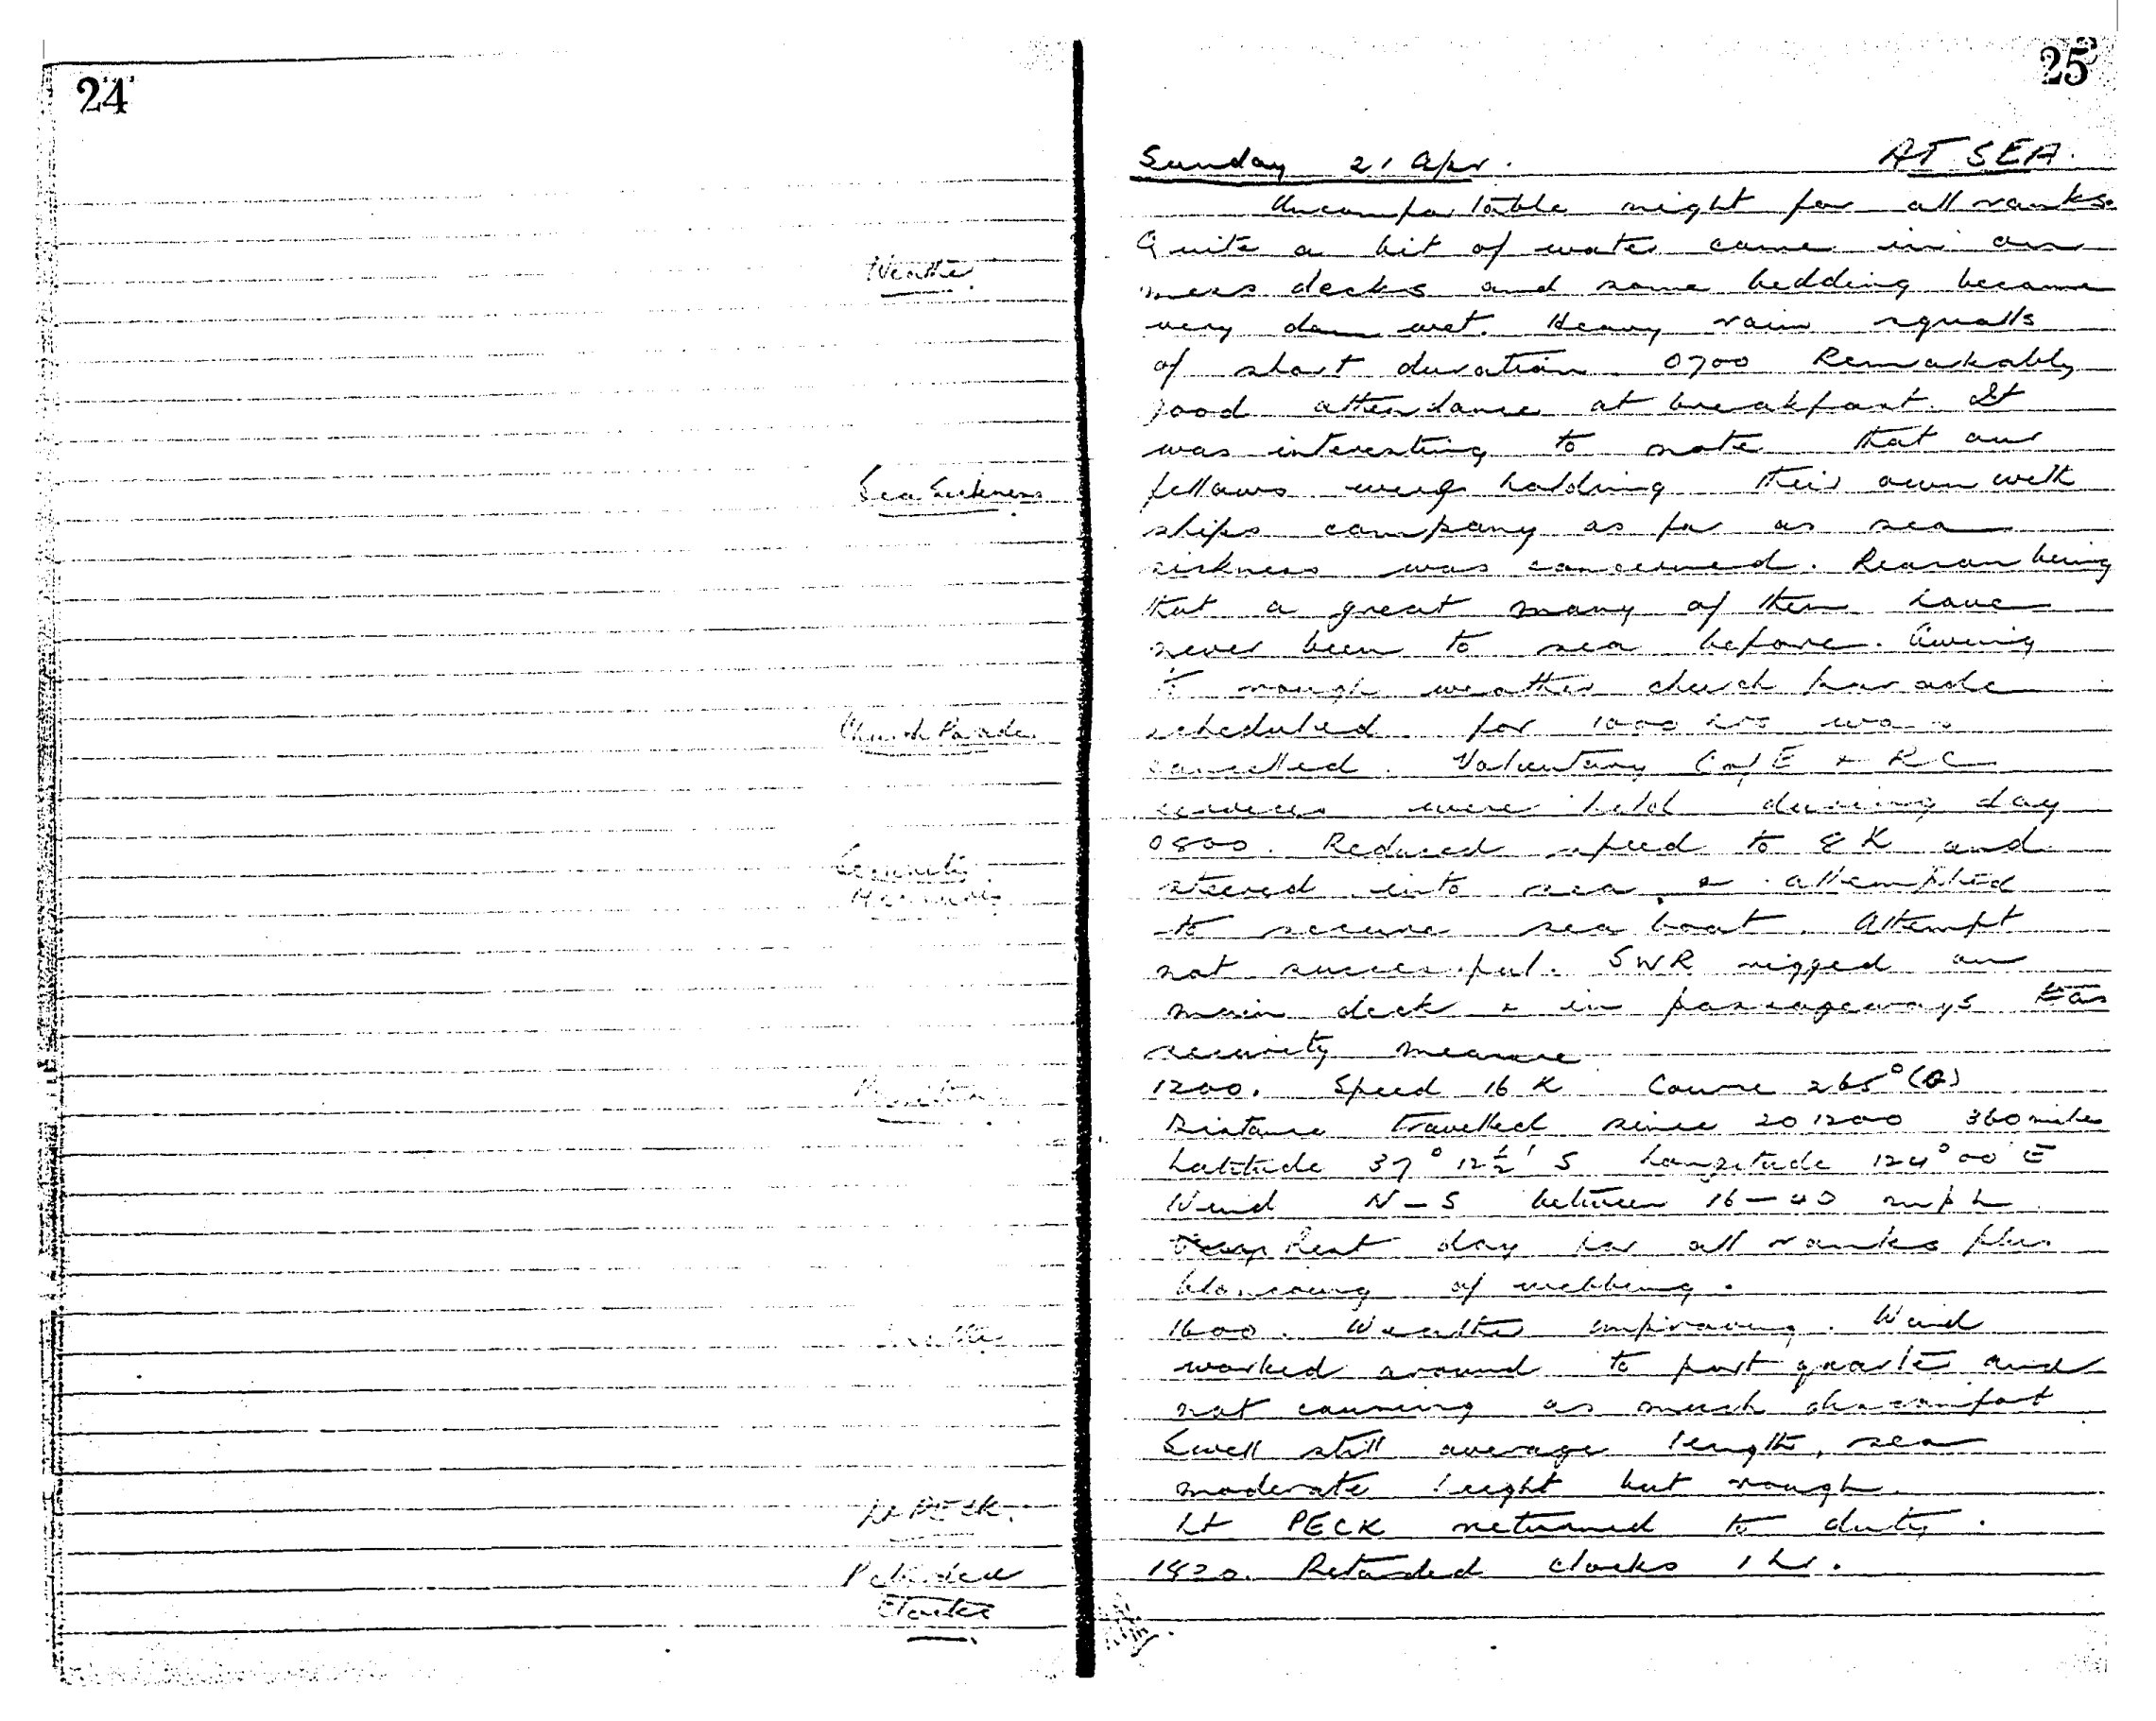 24
Weather
Sea Sickness
Church Parade
Security
Measures
Position
Weather
Lt PECK
Retarded
Clocks
25
Sunday 21 Apr. AT SEA.
Uncomfortable night for all ranks.
Quite a bit of water came in on
mess decks and some bedding became
very dam wet. Heavy rain squalls
of short duration. 0700 Remarkably
good attendance at breakfast. It
was interesting to note that our
fellows were holding their own with
ships company as far as sea
sickness was concerned. Reason being
that a great many of them have
never been to sea before. Owing
to rough weather church parade
scheduled for 1000 hrs was
cancelled. Voluntary C of E & RC
services were held during day
0800. Reduced speed to 8 K and
steered into sea & attempted
to secure sea boat. Attempt
not successful. SWR rigged on
main deck & in passageways as
security measure
1200. Speed 16 K Course 265° (G)
Distance travelled since 201200 360 miles
Latitude 37° 12½' S Longitude 124° 00' E
Wind N-S between 16-40 mph
Rest day for all ranks plus
blancoing of webbing.
1600. Weather improving. Wind
worked around to port quarter and
not causing as much discomfort
Swell still average length, sea
moderate height but rough.
Lt PECK returned to duty.
1820. Retarded clocks 1 hr.